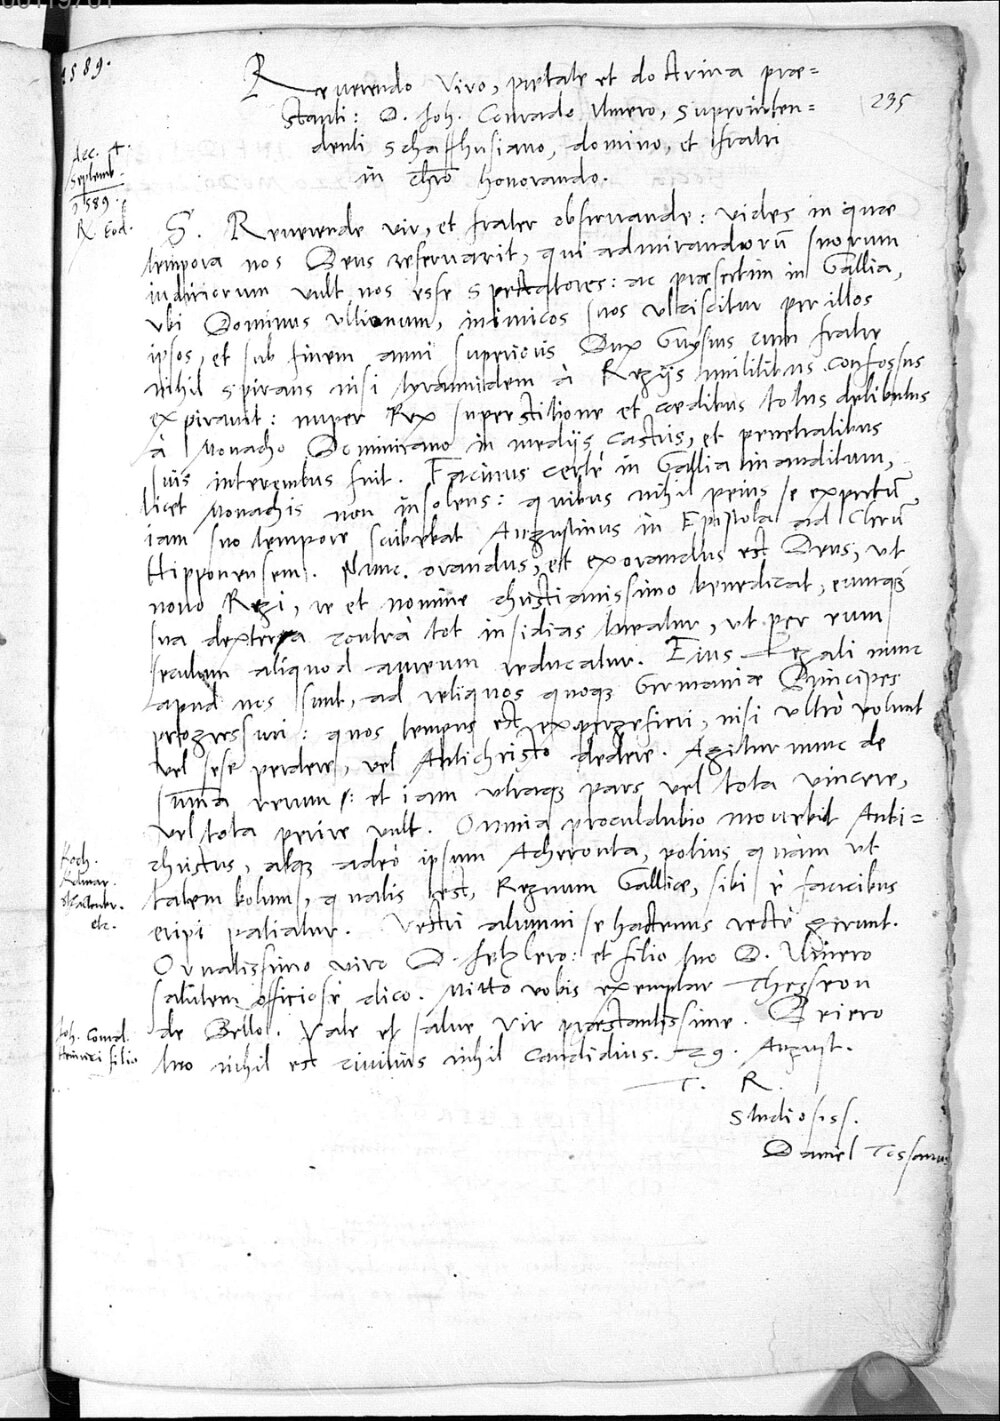 1589.
Reverendo viro, pietate et doctrina præ=
stanti: D. Joh. Conrado Ulmero, Superinten=
denti Schaffhusiano, domino, et fratri
in chro honorando.
235
Acc. 4.
Septemb.
1589.
R. Eod.
S. Reverende vir, et frater observande: vides in quæ
tempora nos Deus reservarit, qui admirandorū suorum
iudiciorum vult nos esse spectatores: ac præsertim in Gallia,
ubi Dominus ultionum, inimicos suos ulciscitur per illos
ipsos, et sub finem anni superioris Dux Guysius cum fratre
nihil spirans nisi tyrannidem à Regijs militibus confossus
expiravit: nuper Rex superstitione et cædibus totus delibutus
à Monacho Dominicano in medijs castris, et penetralibus
suis interemtus fuit. Facinus certè in Gallia inauditum,
licet Monachis non insolens: quibus nihil peius se expertū,
iam suo tempore scribebat Augustinus in Epistola ad Clerū
Hipponensem. Nunc orandus, et exorandus est Deus, ut
novo Regi, re et nomine christianissimo benedicat, eumq́
sua dextera contrà tot insidias tueatur, ut per eum
seculum aliquod aureum reducatur. Eius Legati nunc
apud nos sunt, ad reliquos quoq Germaniæ Principes
progressuri: quos tempus est expergefieri, nisi ultrò volunt
vel sese perdere, vel Antichristo dedere. Agitur nunc de
sum̄a rerum: et iam utraq pars vel tota vincere,
vel tota perire vult. Omnia proculdubio movebit Anti=
christus, atq adeò ipsum Acheronta, potius quàm ut
talem bolum, qualis est, Regnum Galliæ, sibi è faucibus
eripi patiatur. Vestri alumni se hactenus rectè gerunt.
Koch.
etc.
Ornatissimo viro D. Jezlero: et filio tuo D. Ulmero
salutem officiosè dico. Mitto vobis exemplar Theseon
de Bello. Vale et salve Vir præstantissime. Beiero
tuo nihil est civilius nihil candidius. 29. August.
Joh. Conrad.
Heinrici filio
T. R.
Studiosiss.
Daniel Tossanus